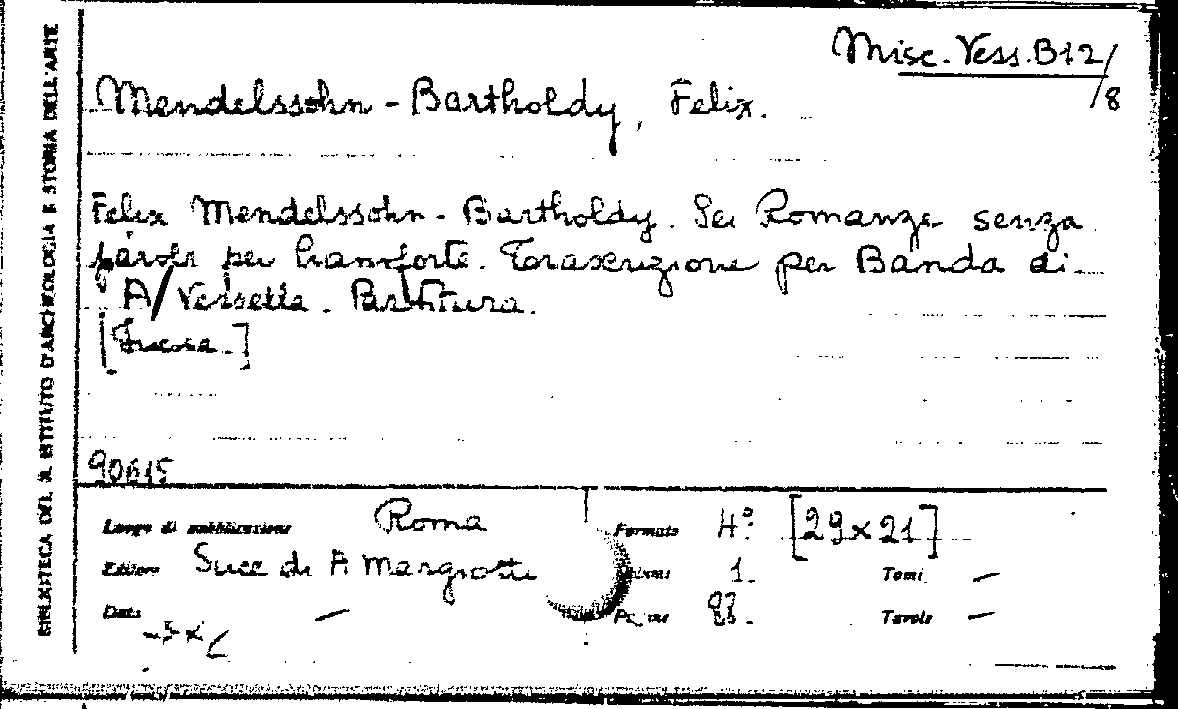 Misc. Vess. B12/8
Mendelssohn-Bartholdy, Felix.
Felix Mendelssohn-Bartholdy. Sei Romanze senza
parole per pianoforte. Trascrizione per Banda di
A/ Vessella. Partitura.
90615
Luogo di pubblicazione Roma
Formato 4º [29x21]
Editore Succ di A Margiotti
Volumi 1.
Tomi —
Data —
Pagine
Tavole —
BIBLIOTECA DEL R. ISTITUTO D'ARCHEOLOGIA E STORIA DELL'ARTE